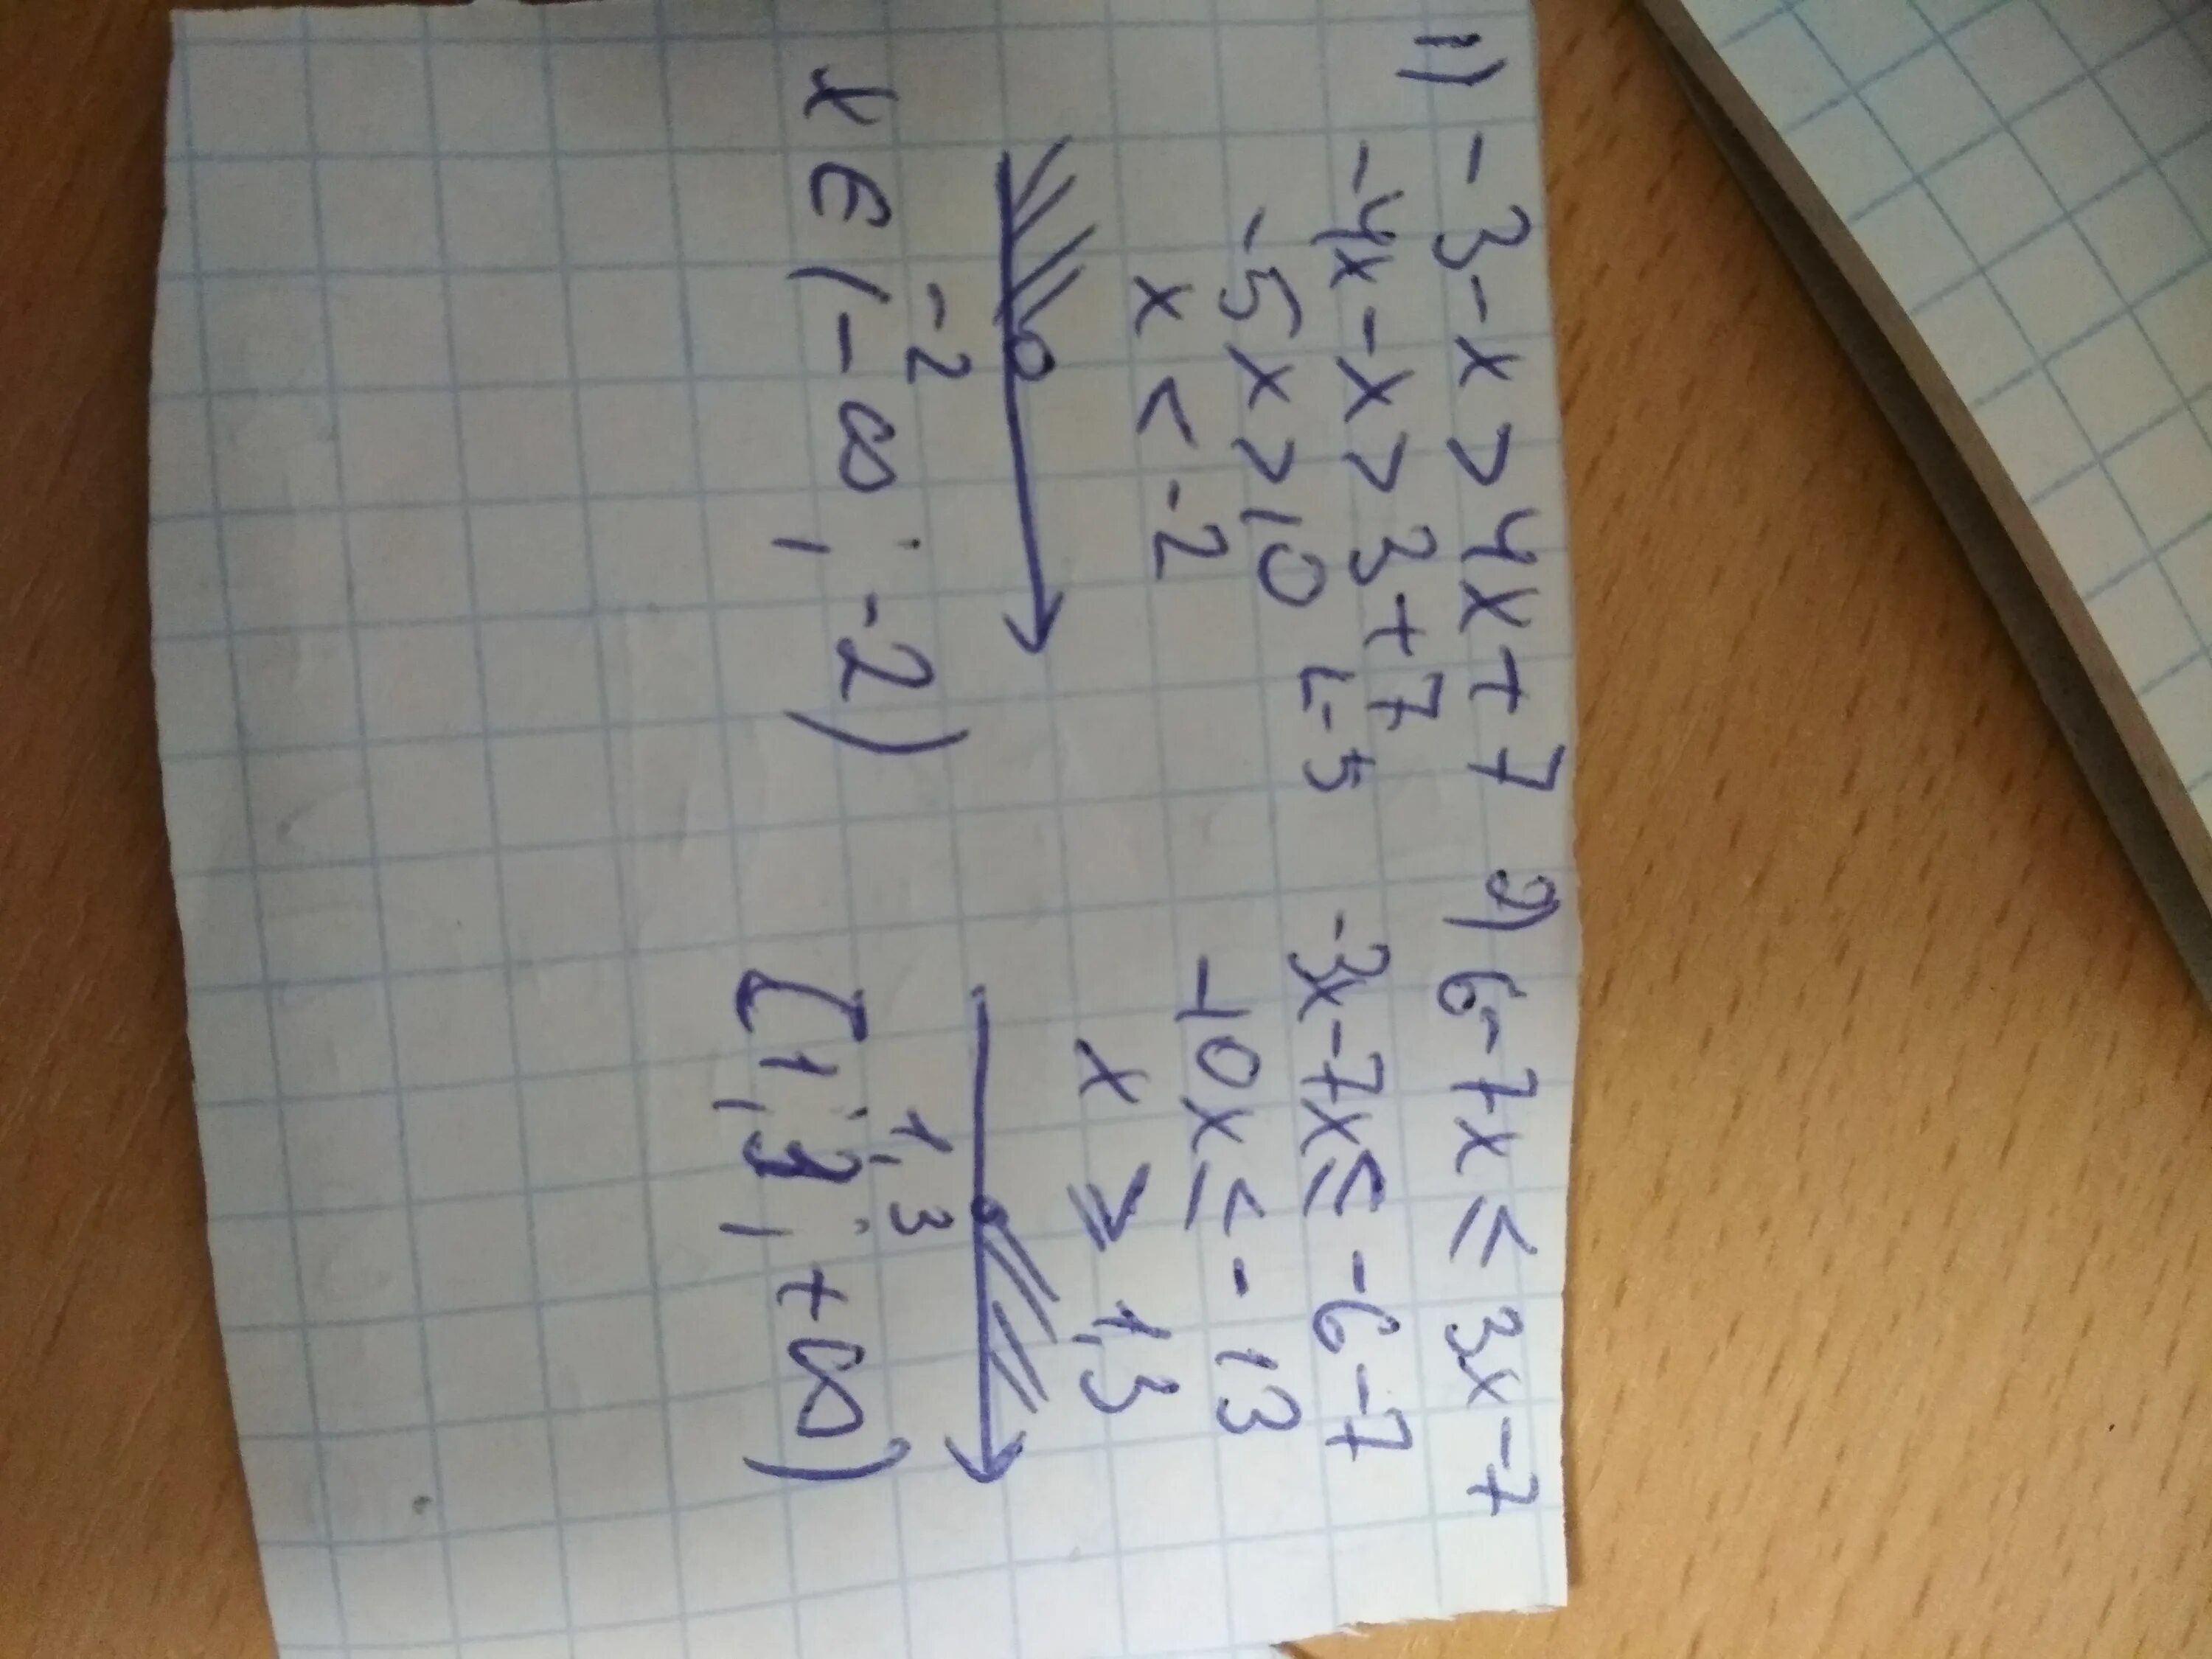 1) -3-x>4x+7
-4x-x>3+7
-5x>10 L-5
x<-2
-2
x∈(-∞; -2)
2) 6-7x≤3x-7
-3x-7x≤-6-7
-10x≤-13
x≥1,3
1,3
[1,3; +∞)